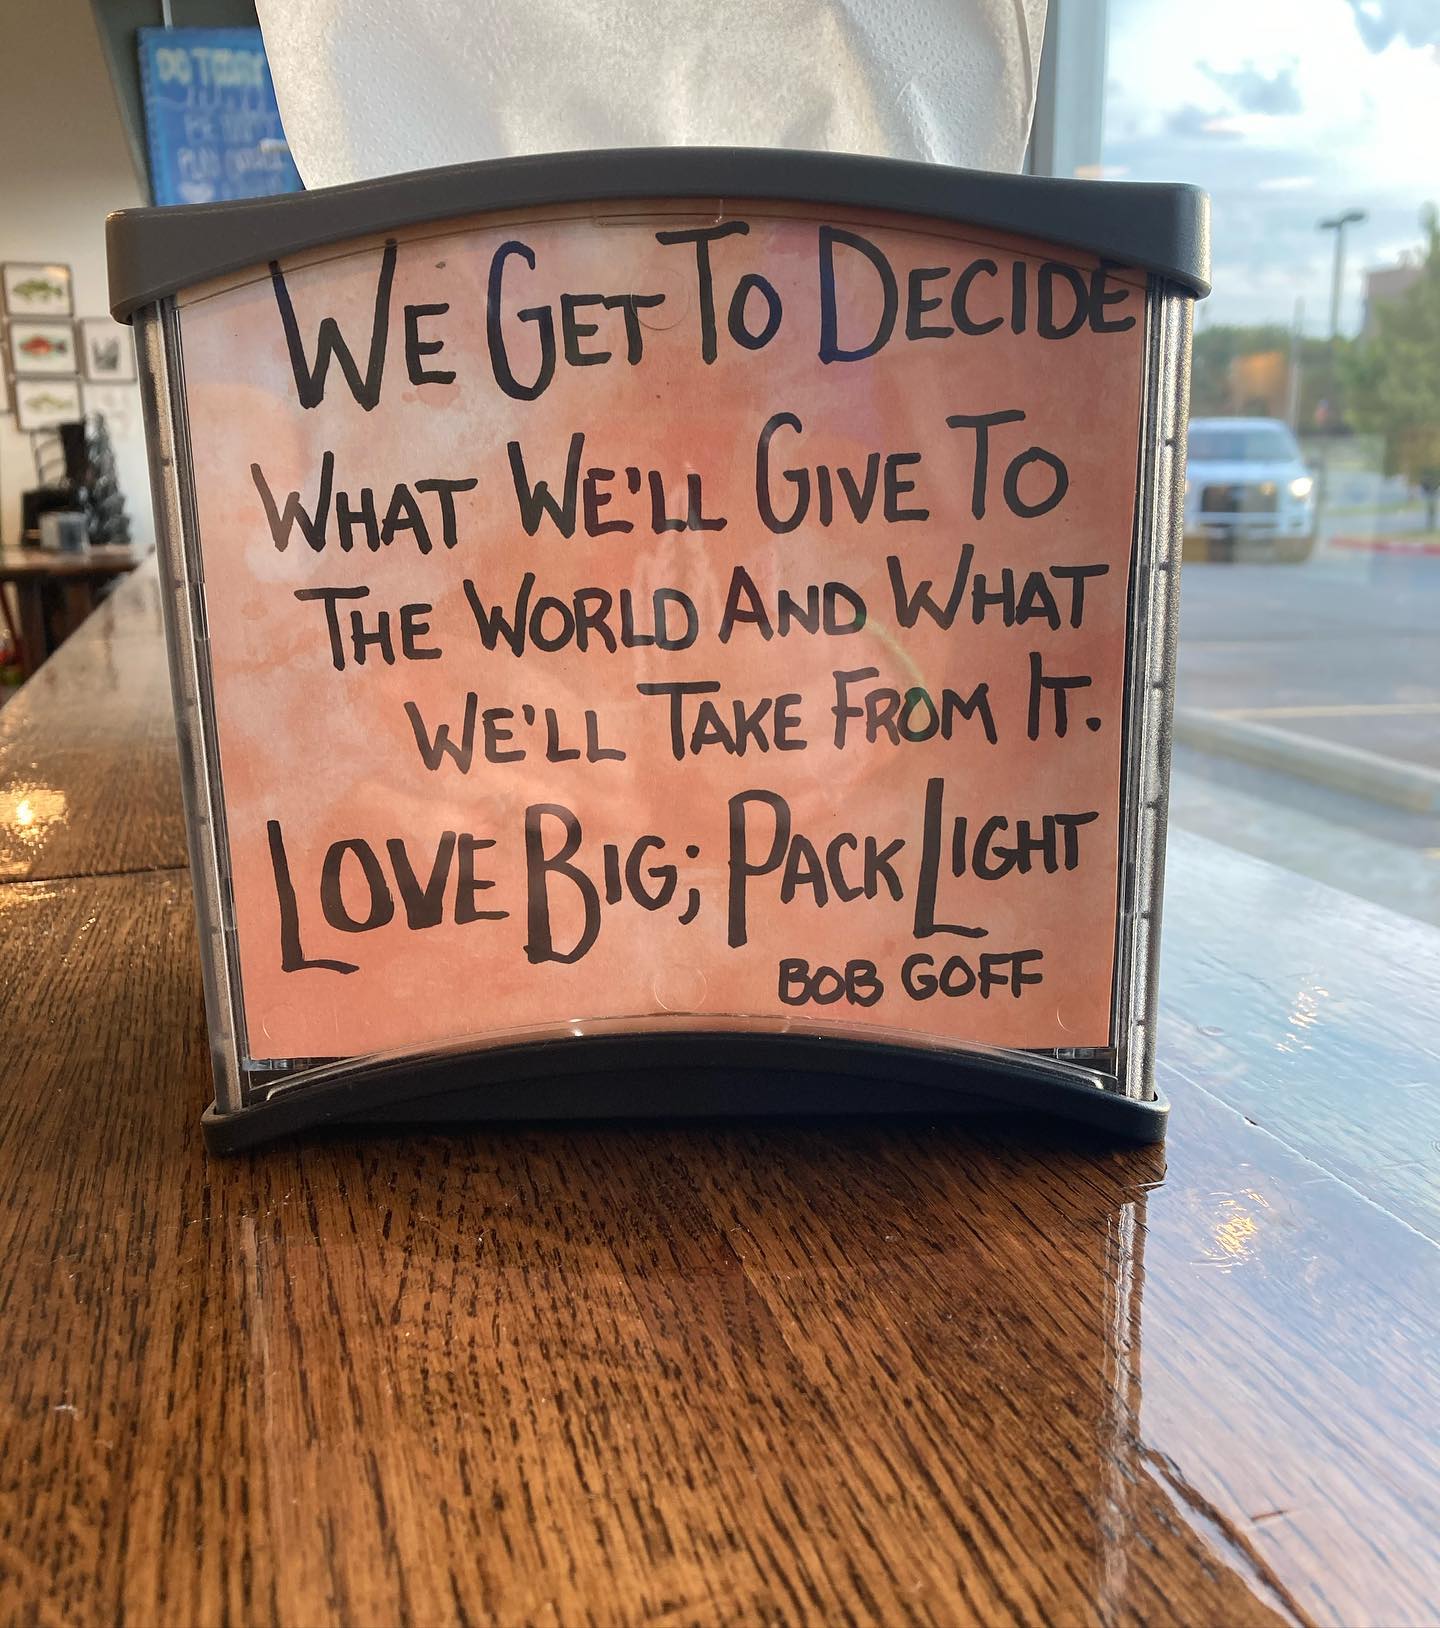 DO TODAY
WE GET TO DECIDE
WHAT WE'LL GIVE TO
THE WORLD AND WHAT
WE'LL TAKE FROM IT.
LOVE BIG; PACK LIGHT
BOB GOFF